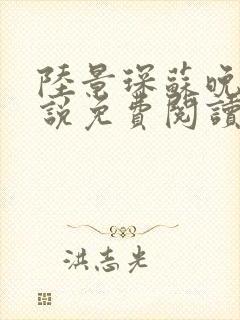 陸景琛蘇晚
說免費閱讀
洪志光